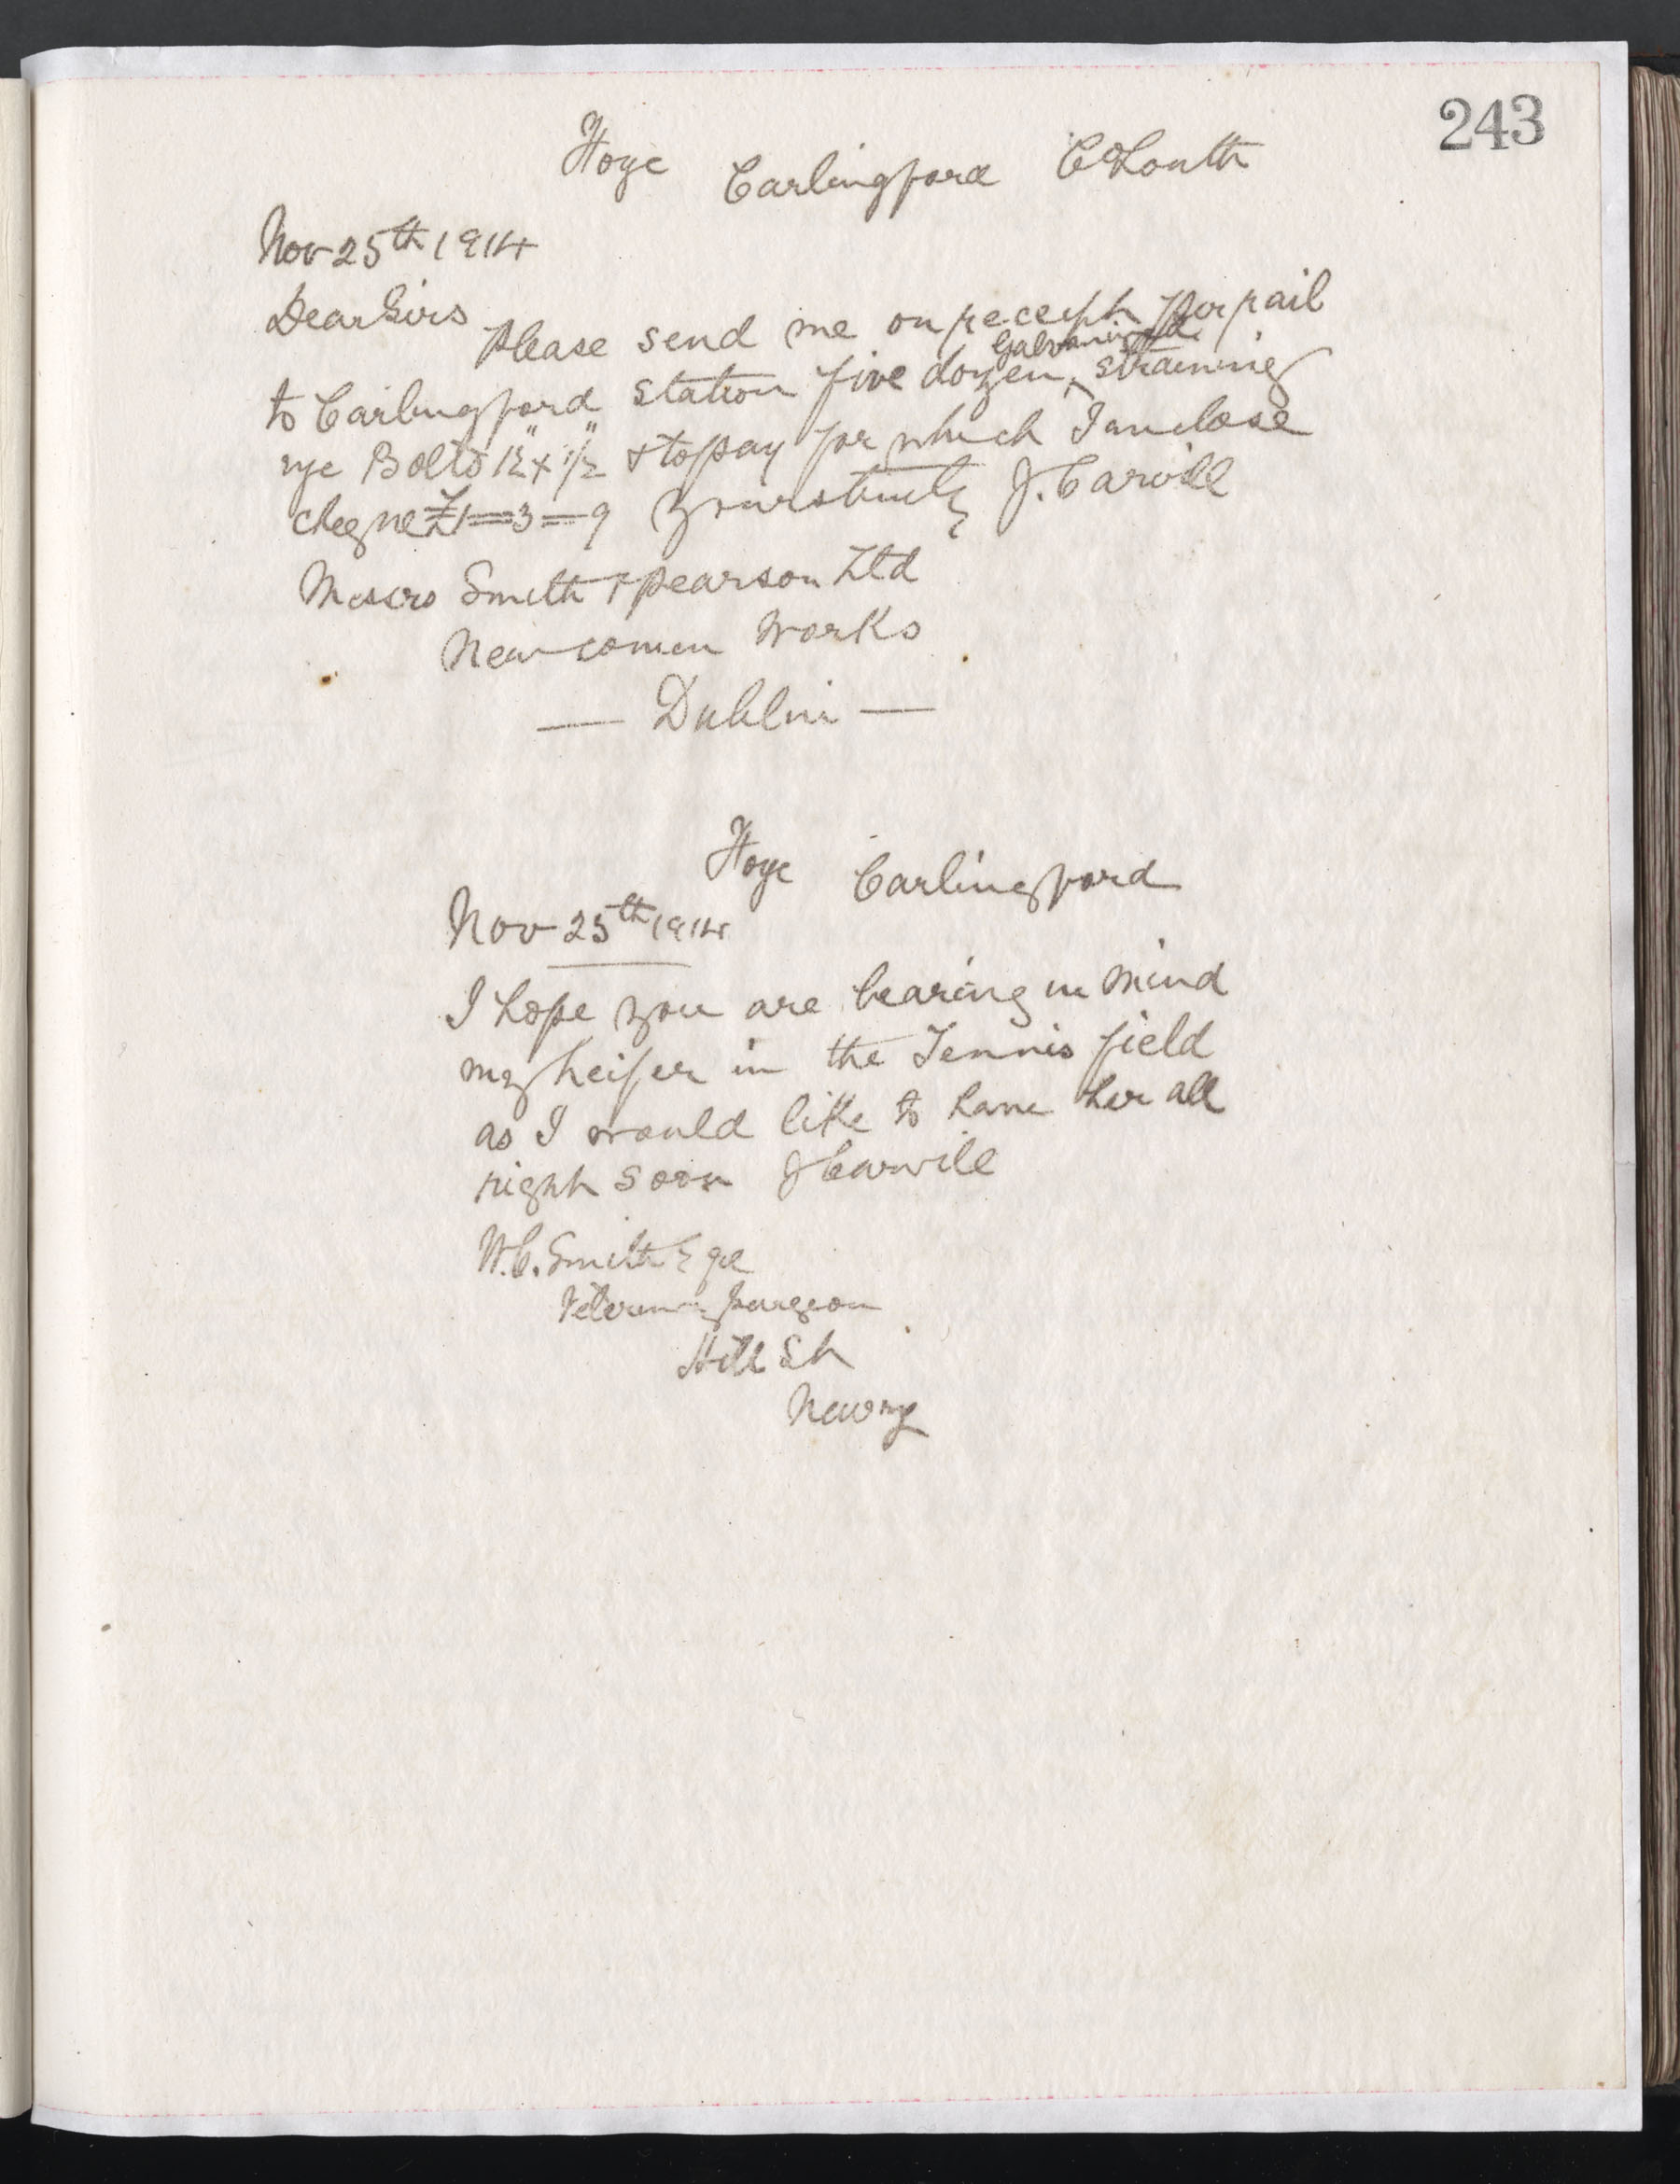 243
Hoye Carlingford Co Louth
Nov 25th 1914
Dear Sirs
Please send me on receiph per rail
to Carlingford station five dozen Galvanized straining
eye Bolts 12" x 1/2" & to pay for which I enclose
cheque £1=3=9 yours truly J. Carvill
Messrs Smith & Pearson Ltd
Newcomen Works
— Dublin —
Hoye Carlingford
Nov 25th 1914
I hope you are bearing in mind
my heifer in the Tennis field
as I would like to have her all
right soon J Carvill
W.C. Smith Esqe
Veterinary Surgeon
Hill St
Newry